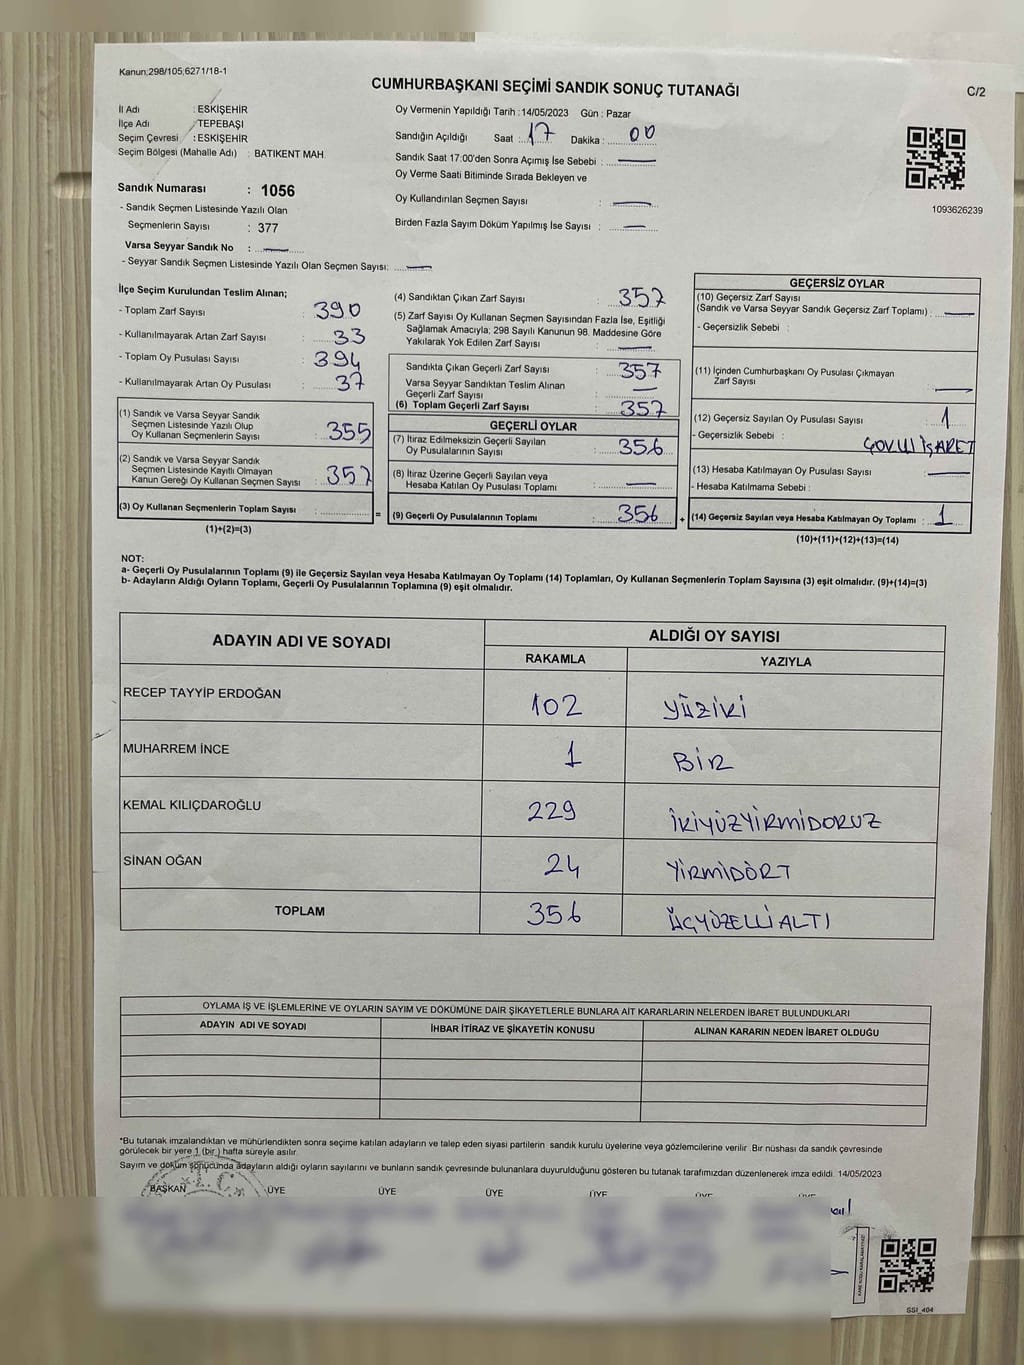 Kanun;298/105;6271/18-1
CUMHURBAŞKANI SEÇİMİ SANDIK SONUÇ TUTANAĞI
C/2
İl Adı : ESKİŞEHİR
İlçe Adı : TEPEBAŞI
Seçim Çevresi : ESKİŞEHİR
Seçim Bölgesi (Mahalle Adı) : BATIKENT MAH.
Sandık Numarası : 1056
- Sandık Seçmen Listesinde Yazılı Olan
Seçmenlerin Sayısı : 377
Varsa Seyyar Sandık No :
- Seyyar Sandık Seçmen Listesinde Yazılı Olan Seçmen Sayısı:
Oy Vermenin Yapıldığı Tarih : 14/05/2023 Gün : Pazar
Sandığın Açıldığı Saat : 17 Dakika : 00
Sandık Saat 17:00'den Sonra Açımış İse Sebebi :
Oy Verme Saati Bitiminde Sırada Bekleyen ve
Oy Kullandırılan Seçmen Sayısı :
Birden Fazla Sayım Döküm Yapılmış İse Sayısı :
1093626239
İlçe Seçim Kurulundan Teslim Alınan;
- Toplam Zarf Sayısı : 390
- Kullanılmayarak Artan Zarf Sayısı : 33
- Toplam Oy Pusulası Sayısı : 394
- Kullanılmayarak Artan Oy Pusulası : 37
(1) Sandık ve Varsa Seyyar Sandık
Seçmen Listesinde Yazılı Olup
Oy Kullanan Seçmenlerin Sayısı : 355
(2) Sandık ve Varsa Seyyar Sandık
Seçmen Listesinde Kayıtlı Olmayan
Kanun Gereği Oy Kullanan Seçmen Sayısı : 357
(3) Oy Kullanan Seçmenlerin Toplam Sayısı :
(1)+(2)=(3)
(4) Sandıktan Çıkan Zarf Sayısı : 357
(5) Zarf Sayısı Oy Kullanan Seçmen Sayısından Fazla İse, Eşitliği
Sağlamak Amacıyla; 298 Sayılı Kanunun 98. Maddesine Göre
Yakılarak Yok Edilen Zarf Sayısı :
Sandıkta Çıkan Geçerli Zarf Sayısı : 357
Varsa Seyyar Sandıktan Teslim Alınan
Geçerli Zarf Sayısı :
(6) Toplam Geçerli Zarf Sayısı : 357
GEÇERLİ OYLAR
(7) İtiraz Edilmeksizin Geçerli Sayılan
Oy Pusulalarının Sayısı : 356
(8) İtiraz Üzerine Geçerli Sayılan veya
Hesaba Katılan Oy Pusulası Toplamı :
= (9) Geçerli Oy Pusulalarının Toplamı : 356 +
GEÇERSİZ OYLAR
(10) Geçersiz Zarf Sayısı
(Sandık ve Varsa Seyyar Sandık Geçersiz Zarf Toplamı) :
- Geçersizlik Sebebi :
(11) İçinden Cumhurbaşkanı Oy Pusulası Çıkmayan
Zarf Sayısı
(12) Geçersiz Sayılan Oy Pusulası Sayısı : 1
- Geçersizlik Sebebi :
İŞARET
(13) Hesaba Katılmayan Oy Pusulası Sayısı :
- Hesaba Katılmama Sebebi :
(14) Geçersiz Sayılan veya Hesaba Katılmayan Oy Toplamı : 1
(10)+(11)+(12)+(13)=(14)
NOT:
a- Geçerli Oy Pusulalarının Toplamı (9) ile Geçersiz Sayılan veya Hesaba Katılmayan Oy Toplamı (14) Toplamları, Oy Kullanan Seçmenlerin Toplam Sayısına (3) eşit olmalıdır. (9)+(14)=(3)
b- Adayların Aldığı Oyların Toplamı, Geçerli Oy Pusulalarının Toplamına (9) eşit olmalıdır.
ADAYIN ADI VE SOYADI
ALDIĞI OY SAYISI
RAKAMLA YAZIYLA
RECEP TAYYİP ERDOĞAN 102 YÜZİKİ
MUHARREM İNCE 1 BİR
KEMAL KILIÇDAROĞLU 229 İKİYÜZYİRMİDOKUZ
SİNAN OĞAN 24 YİRMİDÖRT
TOPLAM 356 ÜÇYÜZELLİALTI
OYLAMA İŞ VE İŞLEMLERİNE VE OYLARIN SAYIM VE DÖKÜMÜNE DAİR ŞİKAYETLERLE BUNLARA AİT KARARLARIN NELERDEN İBARET BULUNDUKLARI
ADAYIN ADI VE SOYADI İHBAR İTİRAZ VE ŞİKAYETİN KONUSU ALINAN KARARIN NEDEN İBARET OLDUĞU
*Bu tutanak imzalandıktan ve mühürlendikten sonra seçime katılan adayların ve talep eden siyasi partilerin sandık kurulu üyelerine veya gözlemcilerine verilir. Bir nüshası da sandık çevresinde
görülecek bir yere 1 (bir ) hafta süreyle asılır.
Sayım ve döküm sonucunda adayların aldığı oyların sayılarını ve bunların sandık çevresinde bulunanlara duyurulduğunu gösteren bu tutanak tarafımızdan düzenlenerek imza edildi. 14/05/2023
T.C.
BAŞKAN ÜYE ÜYE ÜYE ÜYE ÜYE ÜYE
SSI_404